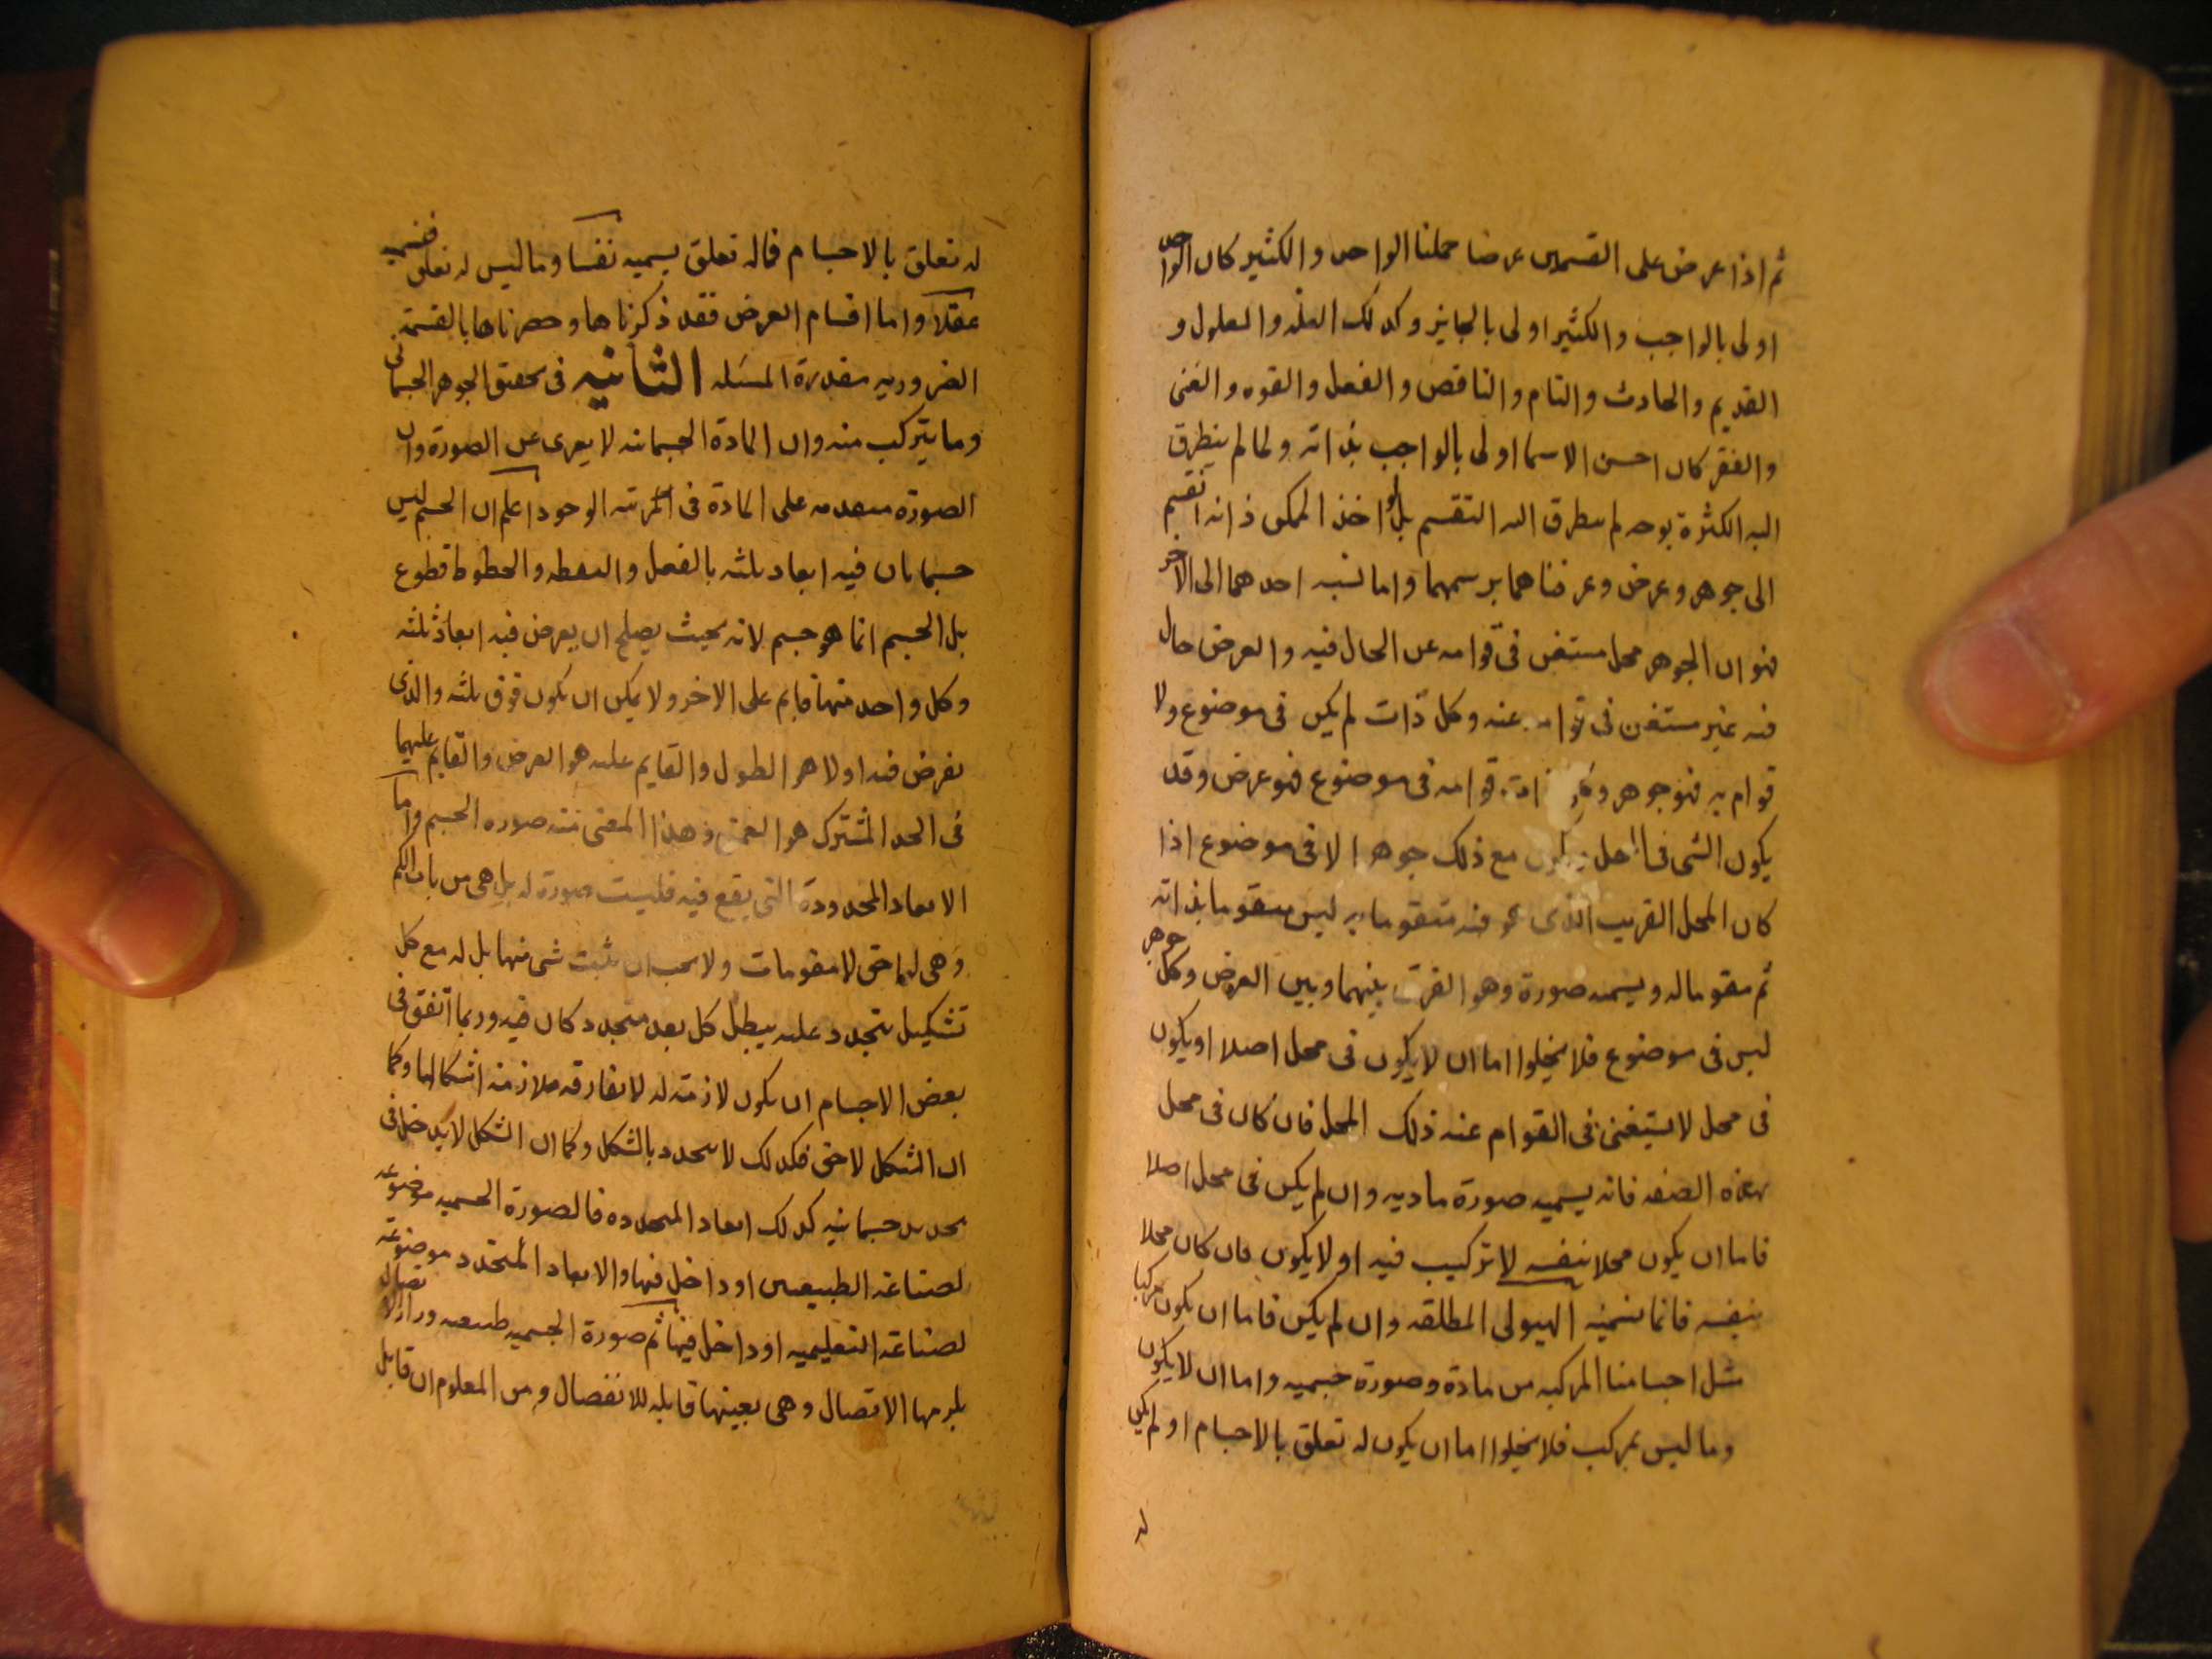 ثم اذا عرض على القسمين عرضا حملنا الواحد والكثير كان الواحد
اولى بالواجب والكثير اولى بالجايز وكذلك العلة والمعلول و
القديم والحادث والتام والناقص والفعل والقوه والغنى
والفقر كان احسن الاسما اولى بالواجب بذاته ولما لم يتطرق
اليه الكثرة بوجه لم يتطرق اليه التقسم بل واخذ الممكن ذاته انقسم
الى جوهر وعرض وعرضناهما برسمهما واما نسبه احدهما الى الاخر
فهو ان الجوهر محل مستغن فى قوامه عن الحال فيه والعرض حال
فيه غير مستغن فى قوامه عنه وكل ذات لم يكن فى موضوع ولا
قوامه به فهو جوهر وكل ذات قوامه فى موضوع فهو عرض وقد
يكون الشى فى المحل ويكون مع ذلك جوهرا لا فى موضوع اذا
كان المحل القريب الذى هو فيه متقوما به ليس متقوما بذاته
ثم مقوما له ويسميه صورة وهو الفرق بينهما وبين العرض وكل جوهر
ليس فى موضوع فلا يخلوا اما ان لا يكون فى محل اصلا او يكون
فى محل لا يستغنى فى القوام عنه ذلك المحل فان كان فى محل
بهذه الصفه فانه يسميه صورة ماديه وان لم يكن فى محل اصلا
فاما ان يكون محلا بنفسه لا تركيب فيه او لا يكون فان كان محلا
بنفسه فانما نسميه الهيولى المطلقه وان لم يكن فاما ان يكون مركبا
مثل اجسامنا المركبه من مادة وصورة جسميه واما ان لا يكون
وما ليس بمركب فلا يخلوا اما ان يكون له تعلق بالاجسام او لم يكن
له
له تعلق بالاجسام فماله تعلق يسميه نفسا وما ليس له تعلق فنسميه
عقلا واما اقسام العرض فقد ذكرناها وحصرناها بالقسمة
الضروريه متعذرة المسئله الثانيه فى تحقيق الجوهر الجسمانى
وما يتركب منه وان المادة الجسمانيه لا يعرى عن الصورة وان
الصورة متقدمه على المادة فى المرتبه الوجود اعلم ان الجسم ليس
جسما بان فيه ابعاد ثلثه بالفعل والنقطه والخطوط قطوع
بل الجسم انما هو جسم لانه بحيث يصلح ان يعرض فيه ابعاد ثلثه
وكل واحد منها قايم على الاخر ولا يمكن ان يكون فوق ثلثه والذى
يفرض فيه اولا هو الطول والقايم عليه هو العرض والقايم عليهما
فى الحد المشترك هو العمق وهذا المعنى منه صوره الجسم واما
الابعاد المحدودة التى يقع فيه فليست صورة له بل هى من باب الكم
وهى لواحق لا مقومات ولا يجب ان يثبت شى منها بل له مع كل
تشكيل يتجدد عليه يبطل كل بعد متجدد كان فيه وربما اتفق فى
بعض الاجسام ان يكون لازمته له لا يفارقه ملازمة اشكالها وكما
ان الشكل لاحق فكذلك لا يتحدد بالشكل وكما ان الشكل لا يدخل فى
تحديد جسمانيه كذلك ابعاد المتحدده فالصورة الجسميه موضوعه
لصناعة الطبيعيين او داخل فيها والابعاد المتحدد موضوعه
لصناعة التعليميه او داخل فيها ثم صورة الجسميه طبيعه ورا الاتصال
يلزمها الاتصال وهى بعينها قابله للانفصال ومن المعلوم ان قابل